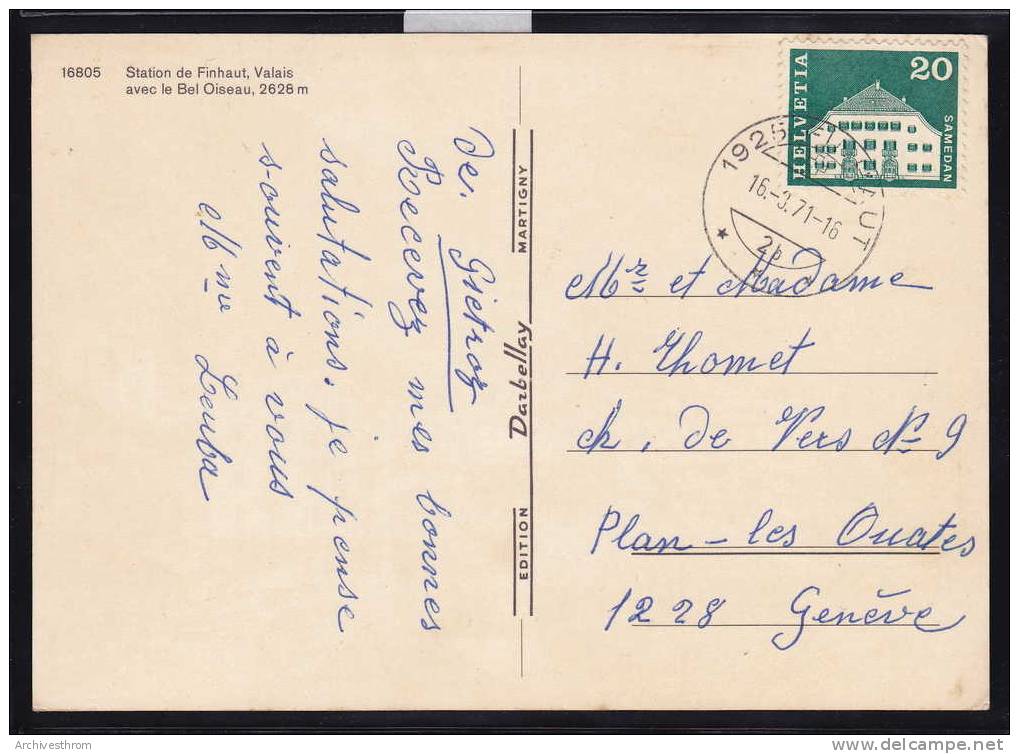 16805 Station de Finhaut, Valais
avec le Bel Oiseau, 2628 m
De. Giétroz
Recevez mes bonnes
salutations. je pense
souvent à vous
Mme Leuba
EDITION Darbellay MARTIGNY
HELVETIA
20
SAMEDAN
1925 FINHAUT
16.-3.71-16
2b
Mr et Madame
H. Thomet
ch. de Vers No 9
Plan-les Ouates
1228 Genève
Archivesthrom
delcampe.net